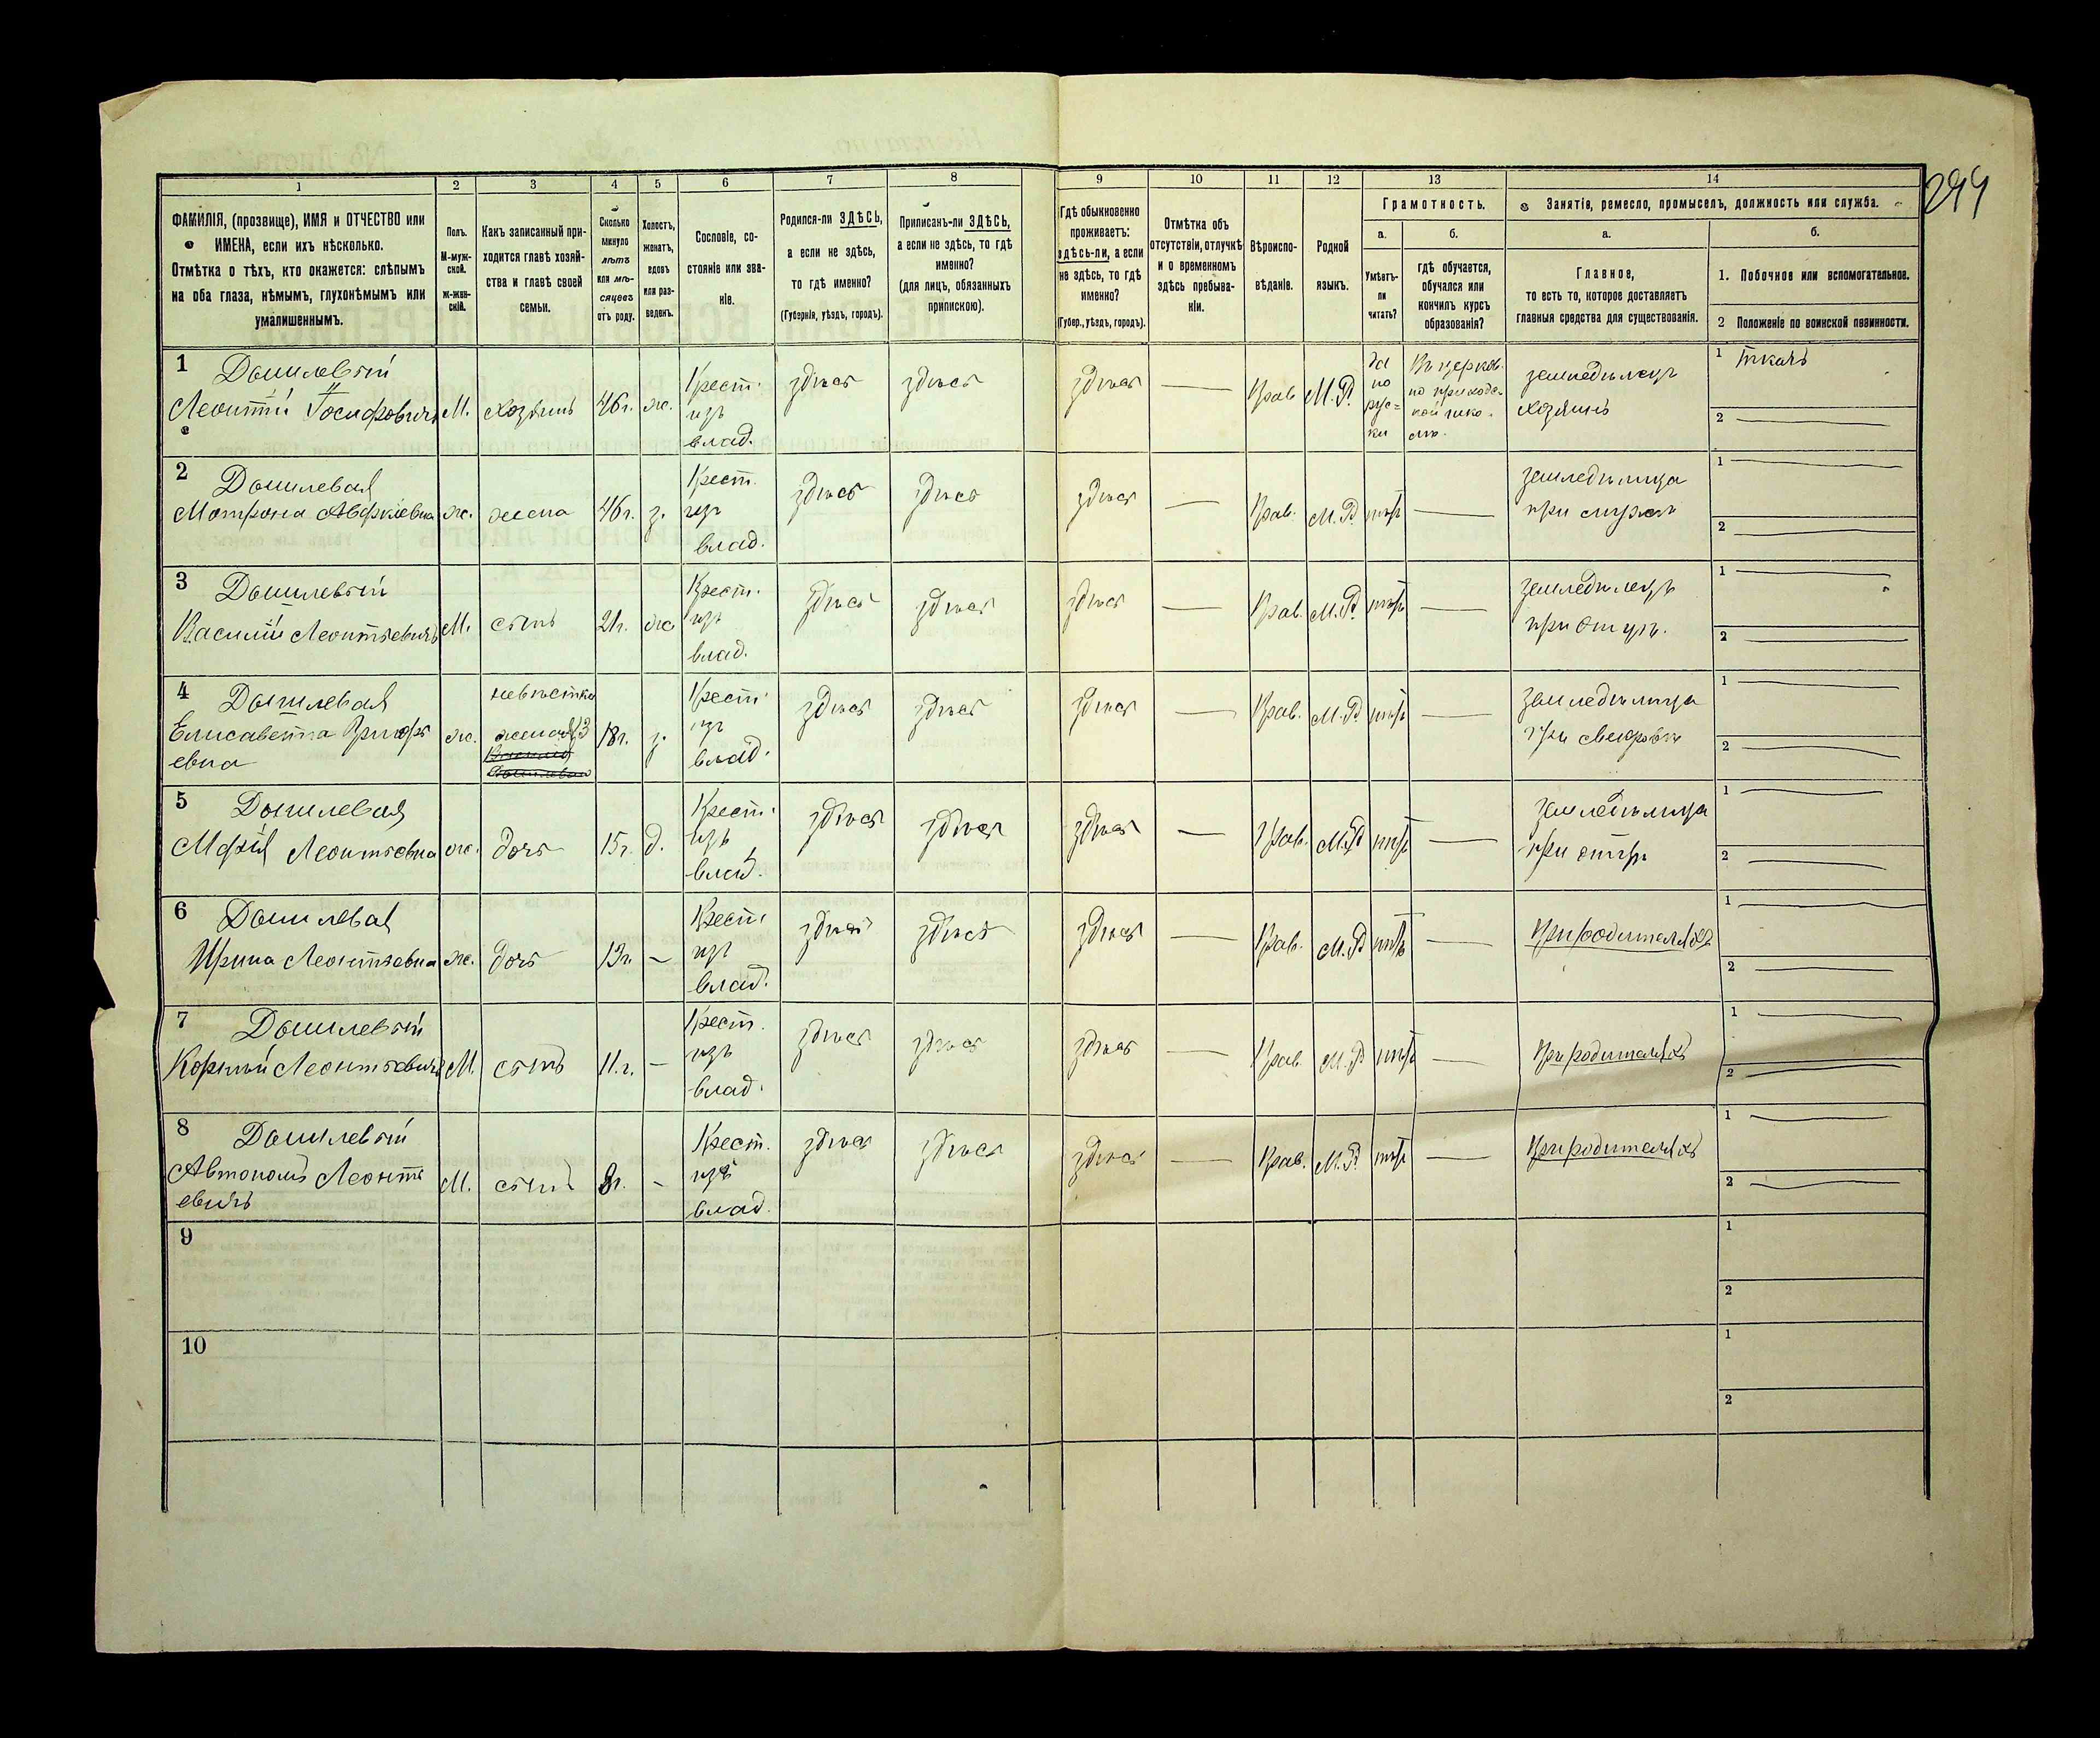 244
1 2 3 4 5 6 7 8 9 10 11 12 13 14
ФАМИЛІЯ, (прозвище), ИМЯ и ОТЧЕСТВО или
ИМЕНА, если ихъ нѣсколько.
Отмѣтка о тѣхъ, кто окажется: слѣпымъ
на оба глаза, нѣмымъ, глухонѣмымъ или
умалишеннымъ.
Полъ.
М-муж-
ской.
Ж-жен-
скій.
Какъ записанный при-
ходится главѣ хозяй-
ства и главѣ своей
семьи.
Сколько
минуло
лѣтъ
или мѣ-
сяцевъ
отъ роду.
Холостъ,
женатъ,
вдовъ
или раз-
веденъ.
Сословіе, со-
стояніе или зва-
ніе.
Родился-ли ЗДѢСЬ,
а если не здѣсь,
то гдѣ именно?
(Губернія, уѣздъ, городъ).
Приписанъ-ли ЗДѢСЬ,
а если не здѣсь, то гдѣ
именно?
(для лицъ, обязанныхъ
припискою).
Гдѣ обыкновенно
проживаетъ:
здѣсь-ли, а если
не здѣсь, то гдѣ
именно?
(Губер., уѣздъ, городъ).
Отмѣтка объ
отсутствіи, отлучкѣ
и о временномъ
здѣсь пребыва-
ніи.
Вѣроиспо-
вѣданіе.
Родной
языкъ.
Грамотность.
а.
Умѣетъ-
ли
читать?
б.
гдѣ обучается,
обучался или
кончилъ курсъ
образованія?
Занятіе, ремесло, промыселъ, должность или служба.
а.
Главное,
то есть то, которое доставляетъ
главныя средства для существованія.
б.
1. Побочное или вспомогательное.
2 Положеніе по воинской повинности.
1
Леонтій Іосифовичъ
М. хозяинъ 46 г. ж.
Крест.
изъ
влад.
здѣсь здѣсь здѣсь — Прав. М.Р.
да
по
рус-
ки
Въ церков-
но приходс-
кой шко-
лѣ.
земледѣлецъ
хозяинъ
1 ткачъ
2 —
2
Матрона Авфкіевна
ж. жена 46 г. з.
Крест.
изъ
влад.
здѣсь здѣсь здѣсь — Прав. М.Р. нѣтъ —
земледѣлица
при мужѣ
1 —
2 —
3
Василій Леонтьевичъ
М. сынъ 21 г. ж.
Крест.
изъ
влад.
здѣсь здѣсь здѣсь — Прав. М.Р. нѣтъ —
земледѣлецъ
при отцѣ.
1 —
2 —
4
Елисавета
евна
ж.
невѣстка
жена 3
18 г. з.
Крест.
изъ
влад.
здѣсь здѣсь здѣсь — Прав. М.Р. нѣтъ —
земледѣлица
при свекровѣ
1 —
2 —
5
Марія Леонтьевна
ж. дочь 15 г. д.
Крест.
изъ
влад.
здѣсь здѣсь здѣсь — Прав. М.Р. нѣтъ —
земледѣлица
при отцѣ
1 —
2 —
6
Ирина Леонтьевна
ж. дочь 13 г. —
Крест.
изъ
влад.
здѣсь здѣсь здѣсь — Прав. М.Р. нѣтъ —
При родителяхъ
1 —
2 —
7
Корнилій Леонтьевичъ
М. сынъ 11 г. —
Крест.
изъ
влад.
здѣсь здѣсь здѣсь — Прав. М.Р. нѣтъ —
При родителяхъ
1 —
2 —
8
Автономъ Леонть
евичъ
М. сынъ 8 г. —
Крест.
изъ
влад.
здѣсь здѣсь здѣсь — Прав. М.Р. нѣтъ —
При родителяхъ
1 —
2 —
9
1
2
10
1
2